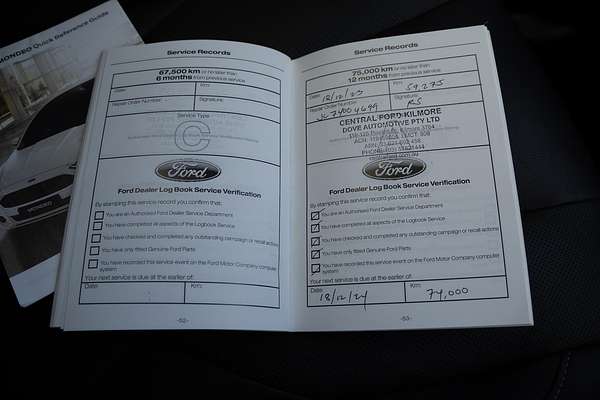 MONDEO Quick Reference Guide
MONDEO
Service Records
67,500 km or no later than
6 months from previous service
Date:
Km:
Repair Order Number:
Signature:
Service Type
C
Ford
Ford Dealer Log Book Service Verification
By stamping this service record you confirm that:
You are an Authorised Ford Dealer Service Department
You have completed all aspects of the Logbook Service
You have checked and completed any outstanding campaign or recall actions
You have only fitted Genuine Ford Parts
You have recorded this service event on the Ford Motor Company computer
system
Your next service is due at the earlier of:
Date:
Km:
-52-
Service Records
75,000 km or no later than
12 months from previous service
Date: 18/12/23
Km: 59,275
Repair Order Number
Signature:
CENTRAL FORD KILMORE
DOVE AUTOMOTIVE PTY LTD
Ford
Ford Dealer Log Book Service Verification
By stamping this service record you confirm that:
You are an Authorised Ford Dealer Service Department
You have completed all aspects of the Logbook Service
You have checked and completed any outstanding campaign or recall actions
You have only fitted Genuine Ford Parts
You have recorded this service event on the Ford Motor Company computer
system
Your next service is due at the earlier of:
Date: 18/12/24
Km: 74,000
-53-